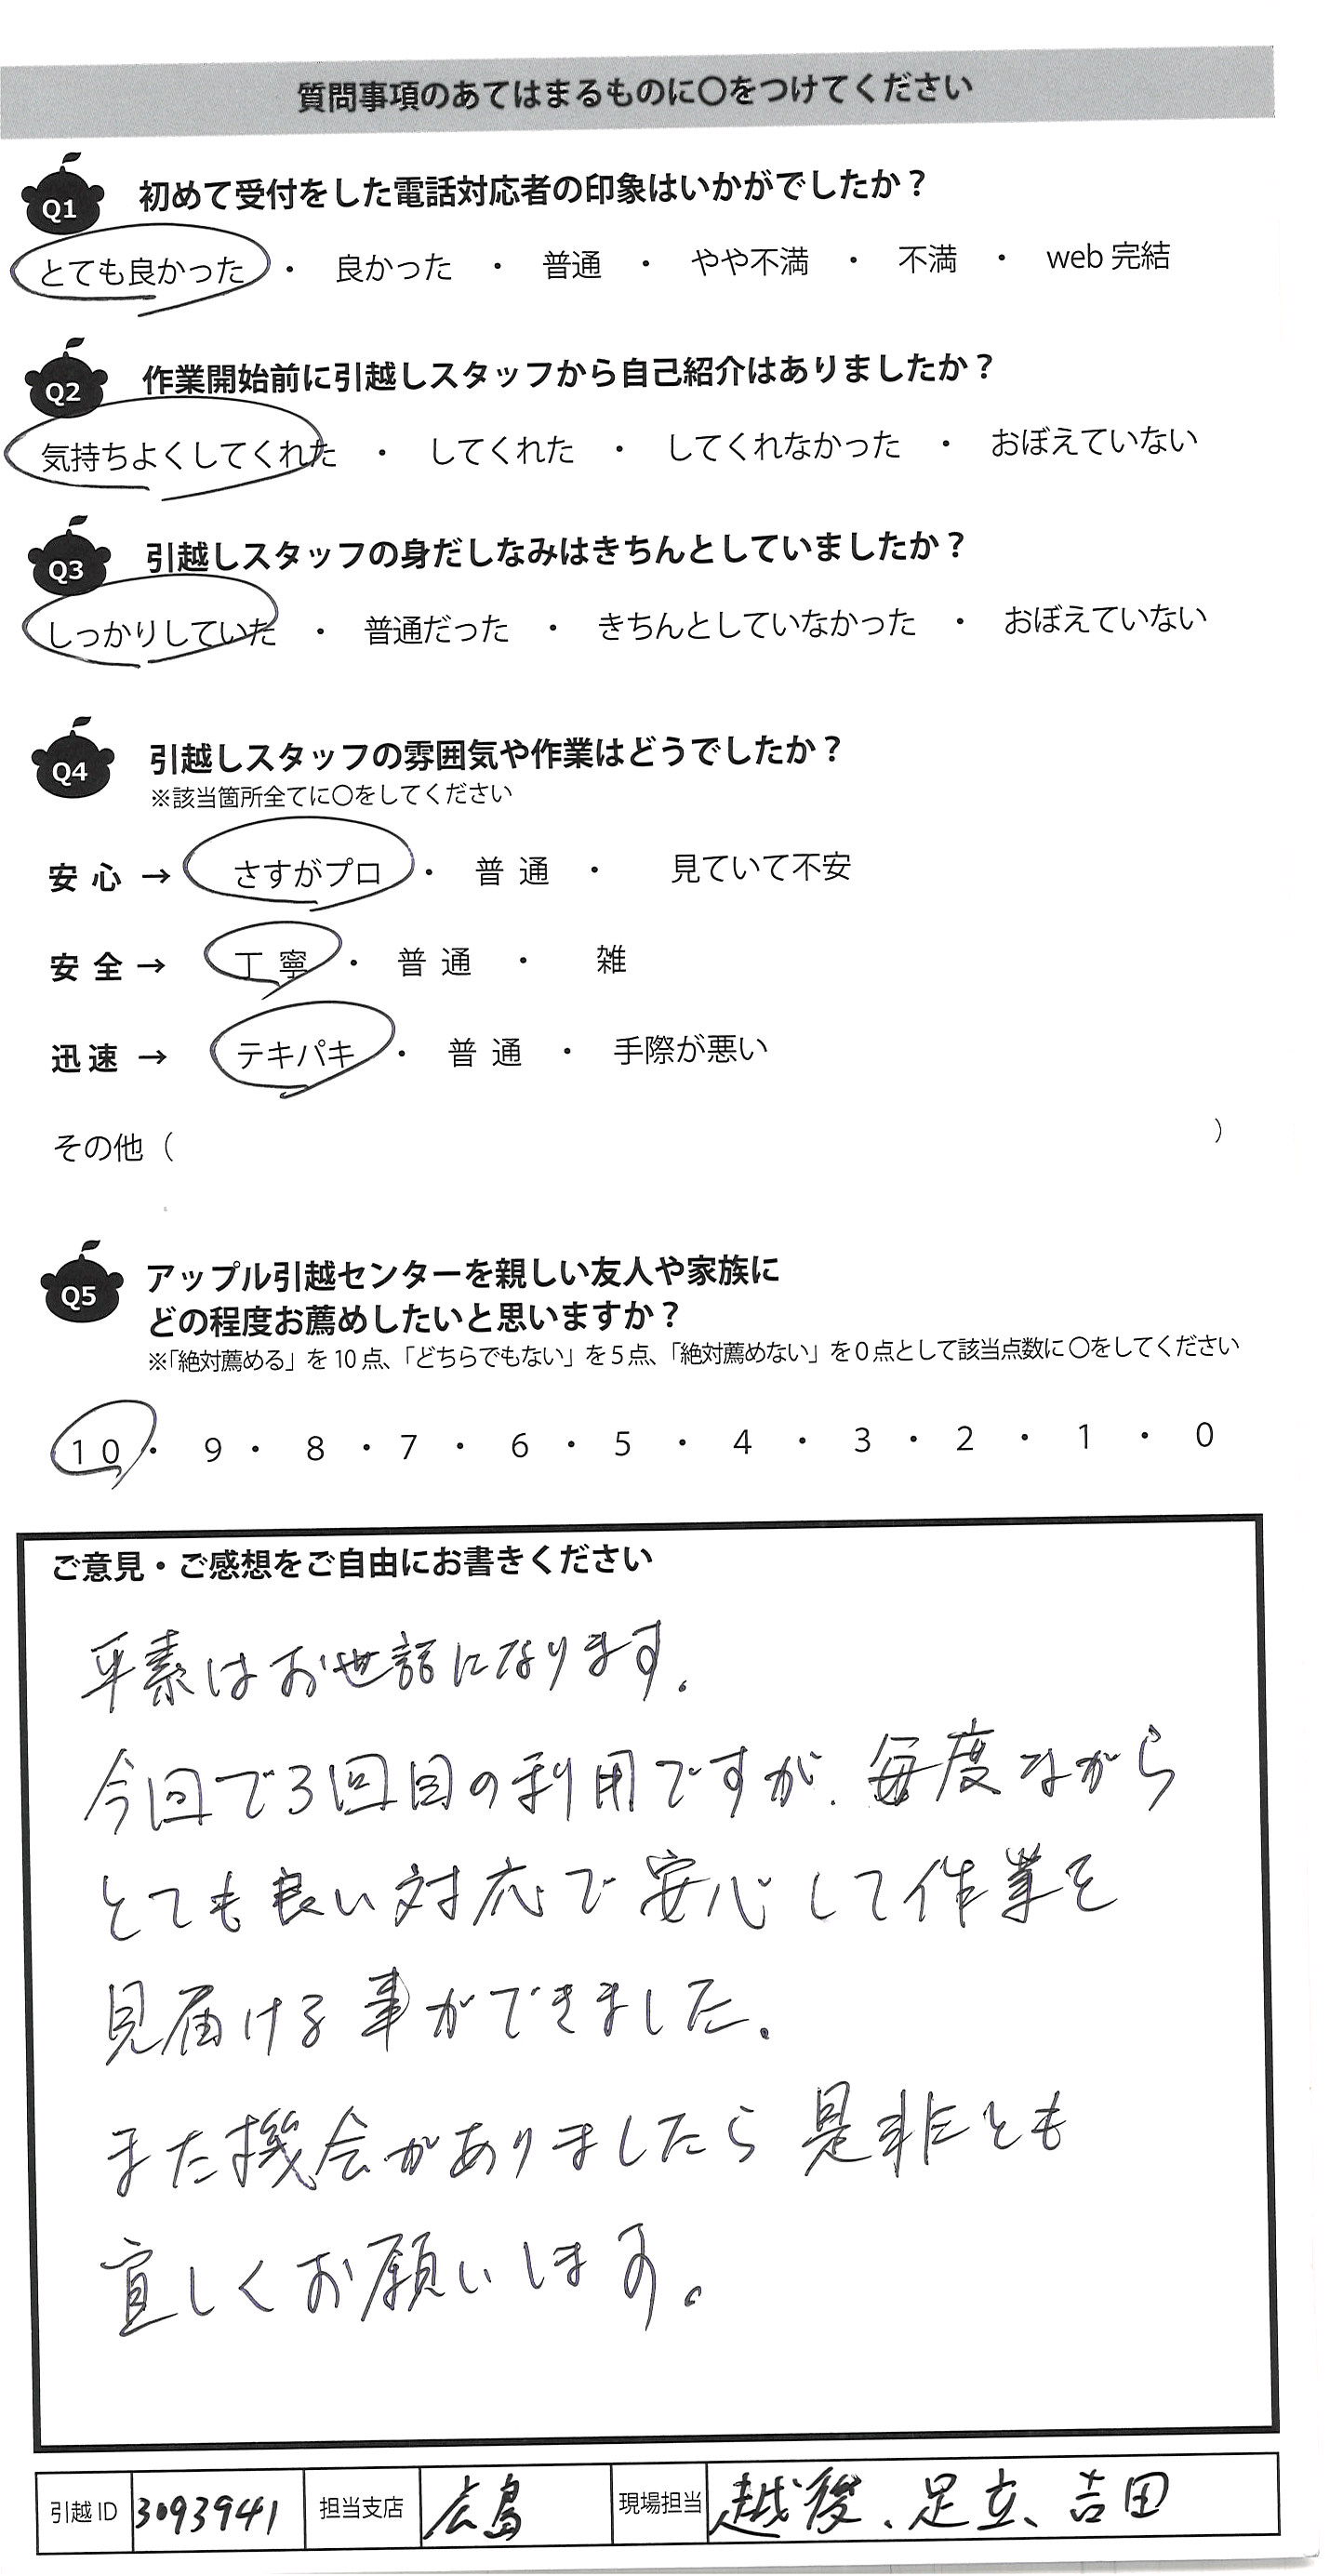 質問事項のあてはまるものに〇をつけてください
Q1 初めて受付をした電話対応者の印象はいかがでしたか？
とても良かった ・ 良かった ・ 普通 ・ やや不満 ・ 不満 ・ web 完結
Q2 作業開始前に引越しスタッフから自己紹介はありましたか？
気持ちよくしてくれた ・ してくれた ・ してくれなかった ・ おぼえていない
Q3 引越しスタッフの身だしなみはきちんとしていましたか？
しっかりしていた ・ 普通だった ・ きちんとしていなかった ・ おぼえていない
Q4 引越しスタッフの雰囲気や作業はどうでしたか？
※該当箇所全てに〇をしてください
安心 → さすがプロ ・ 普通 ・ 見ていて不安
安全 → 丁寧 ・ 普通 ・ 雑
迅速 → テキパキ ・ 普通 ・ 手際が悪い
その他（ ）
Q5 アップル引越センターを親しい友人や家族に
どの程度お薦めしたいと思いますか？
※「絶対薦める」を10点、「どちらでもない」を5点、「絶対薦めない」を0点として該当点数に〇をしてください
10 ・ 9 ・ 8 ・ 7 ・ 6 ・ 5 ・ 4 ・ 3 ・ 2 ・ 1 ・ 0
ご意見・ご感想をご自由にお書きください
平素はお世話になります.
今回で3回目の利用ですが、毎度ながら
とても良い対応で安心して作業を
見届ける事ができました.
また機会がありましたら是非とも
宜しくお願いします。
引越ID 3093941 担当支店 広島 現場担当 越後、足立、吉田